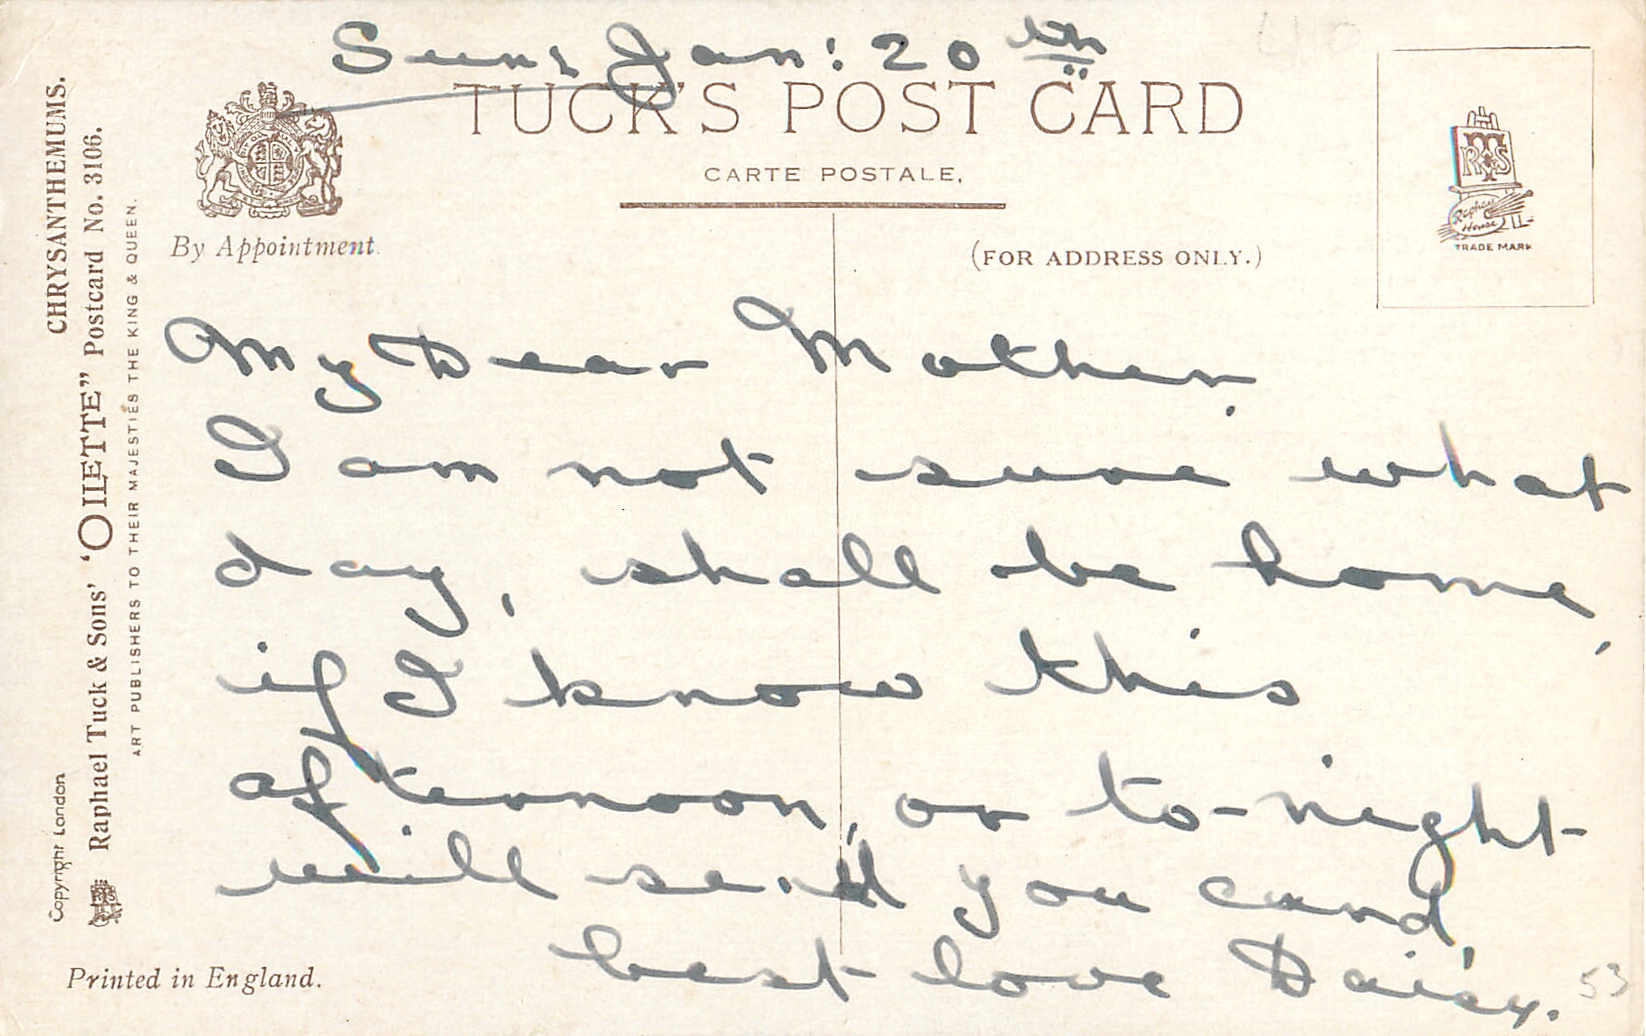 Sun: Jan: 20th
TUCK'S POST CARD
CARTE POSTALE.
By Appointment.
(FOR ADDRESS ONLY.)
RTS
Raphael
House
TRADE MARK
CHRYSANTHEMUMS.
Raphael Tuck & Sons' "OILETTE" Postcard No. 3106.
ART PUBLISHERS TO THEIR MAJESTIES THE KING & QUEEN.
Copyright London
My Dear Mother.
I am not sure what
day, shall be home,
if I know this
afternoon, or to-night
will send you card,
best love Daisy.
Printed in England.
53